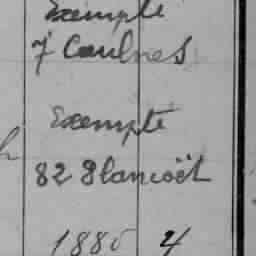 Exempté
7 Caulnes
Exempté
82 Plancoët
1880 4